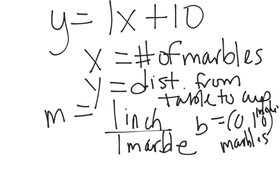 y = 1x + 10
x = # of marbles
y = dist. from
table to cup
m = 1 inch
1 marble b = (0, 10)
marbles